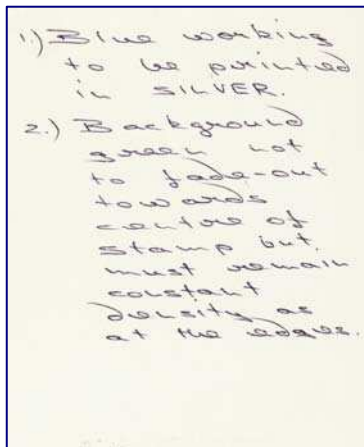 1.) Blue working
to be printed
in SILVER.
2.) Background
green not
to fade-out
towards
centre of
stamp but,
must remain
constant
density as
at the edges.